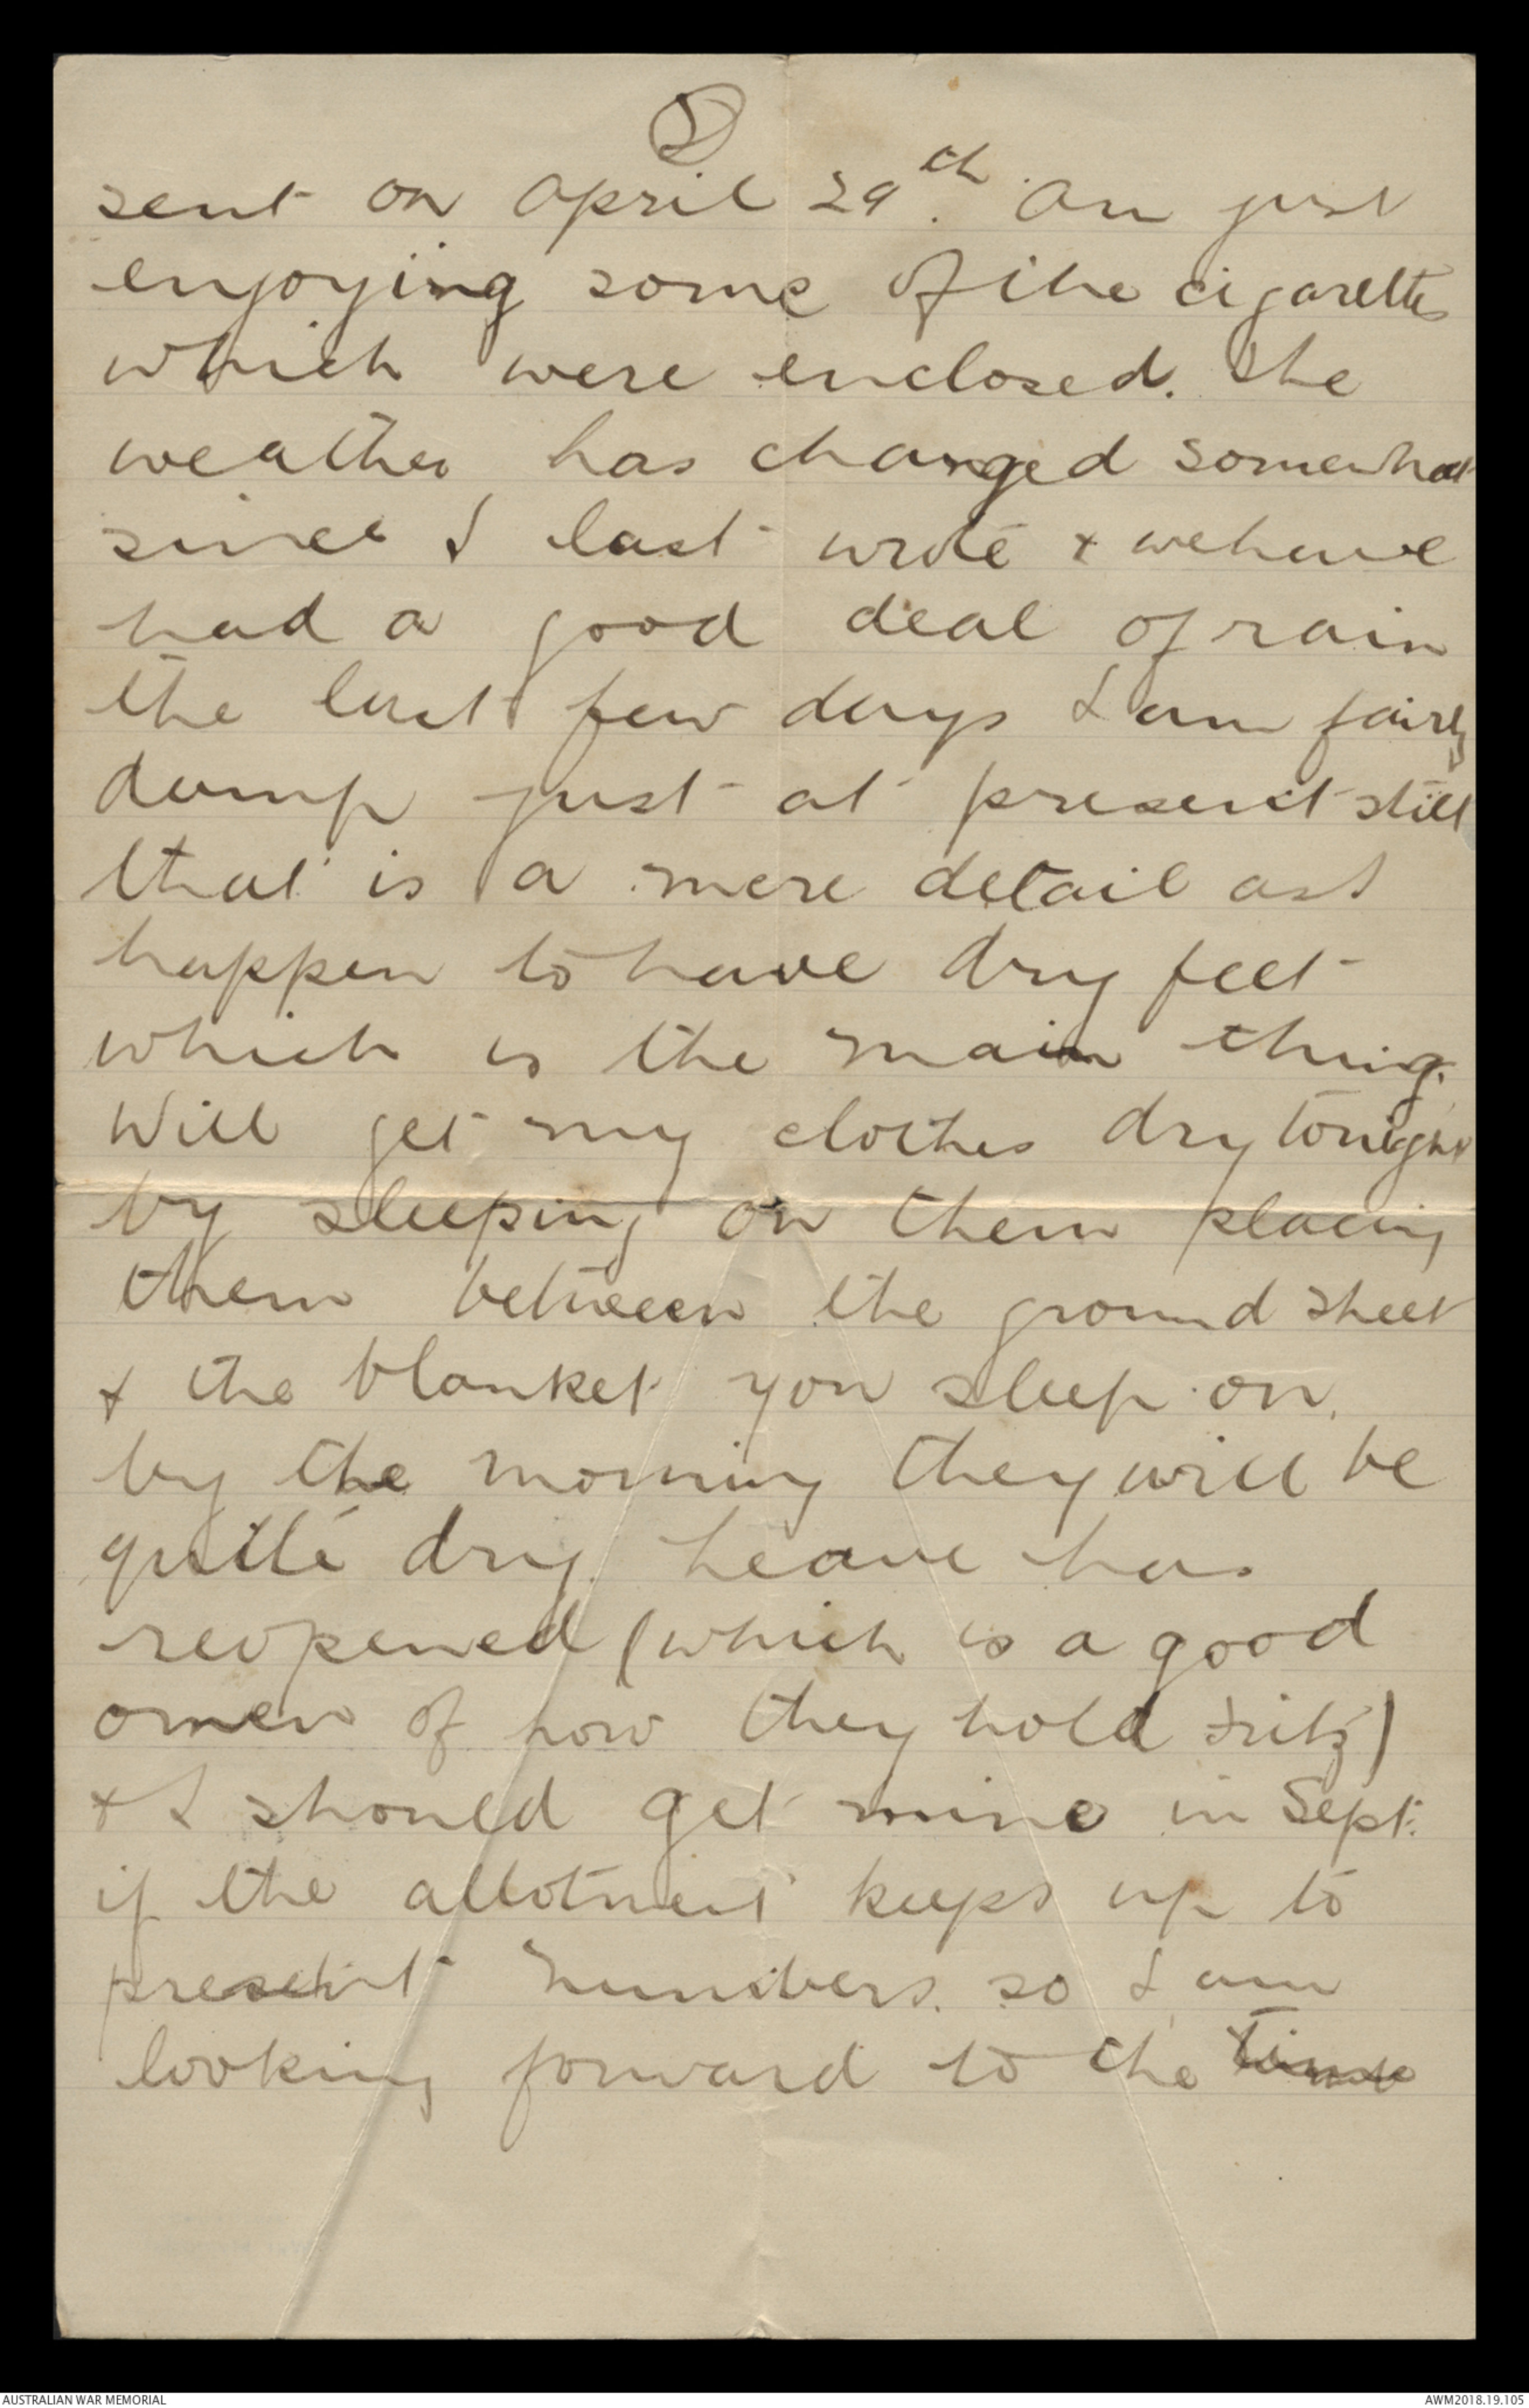 2
sent on April 29th. Am just
enjoying some of the cigarettes
which were enclosed. The
weather has changed somewhat
since I last wrote & we have
had a good deal of rain
the last few days I am fairly
damp just at present still
that is a mere detail as I
happen to have dry feet
which is the main thing.
Will get my clothes dry tonight
by sleeping on them placing
them between the ground sheet
& the blanket you sleep on,
by the morning they will be
quite dry. Leave has
reopened (which is a good
omen of how they hold Fritz)
& I should get mine in Sept.
if the allotment keeps up to
present numbers. so I am
looking forward to the time
AUSTRALIAN WAR MEMORIAL
AWM2018.19.105